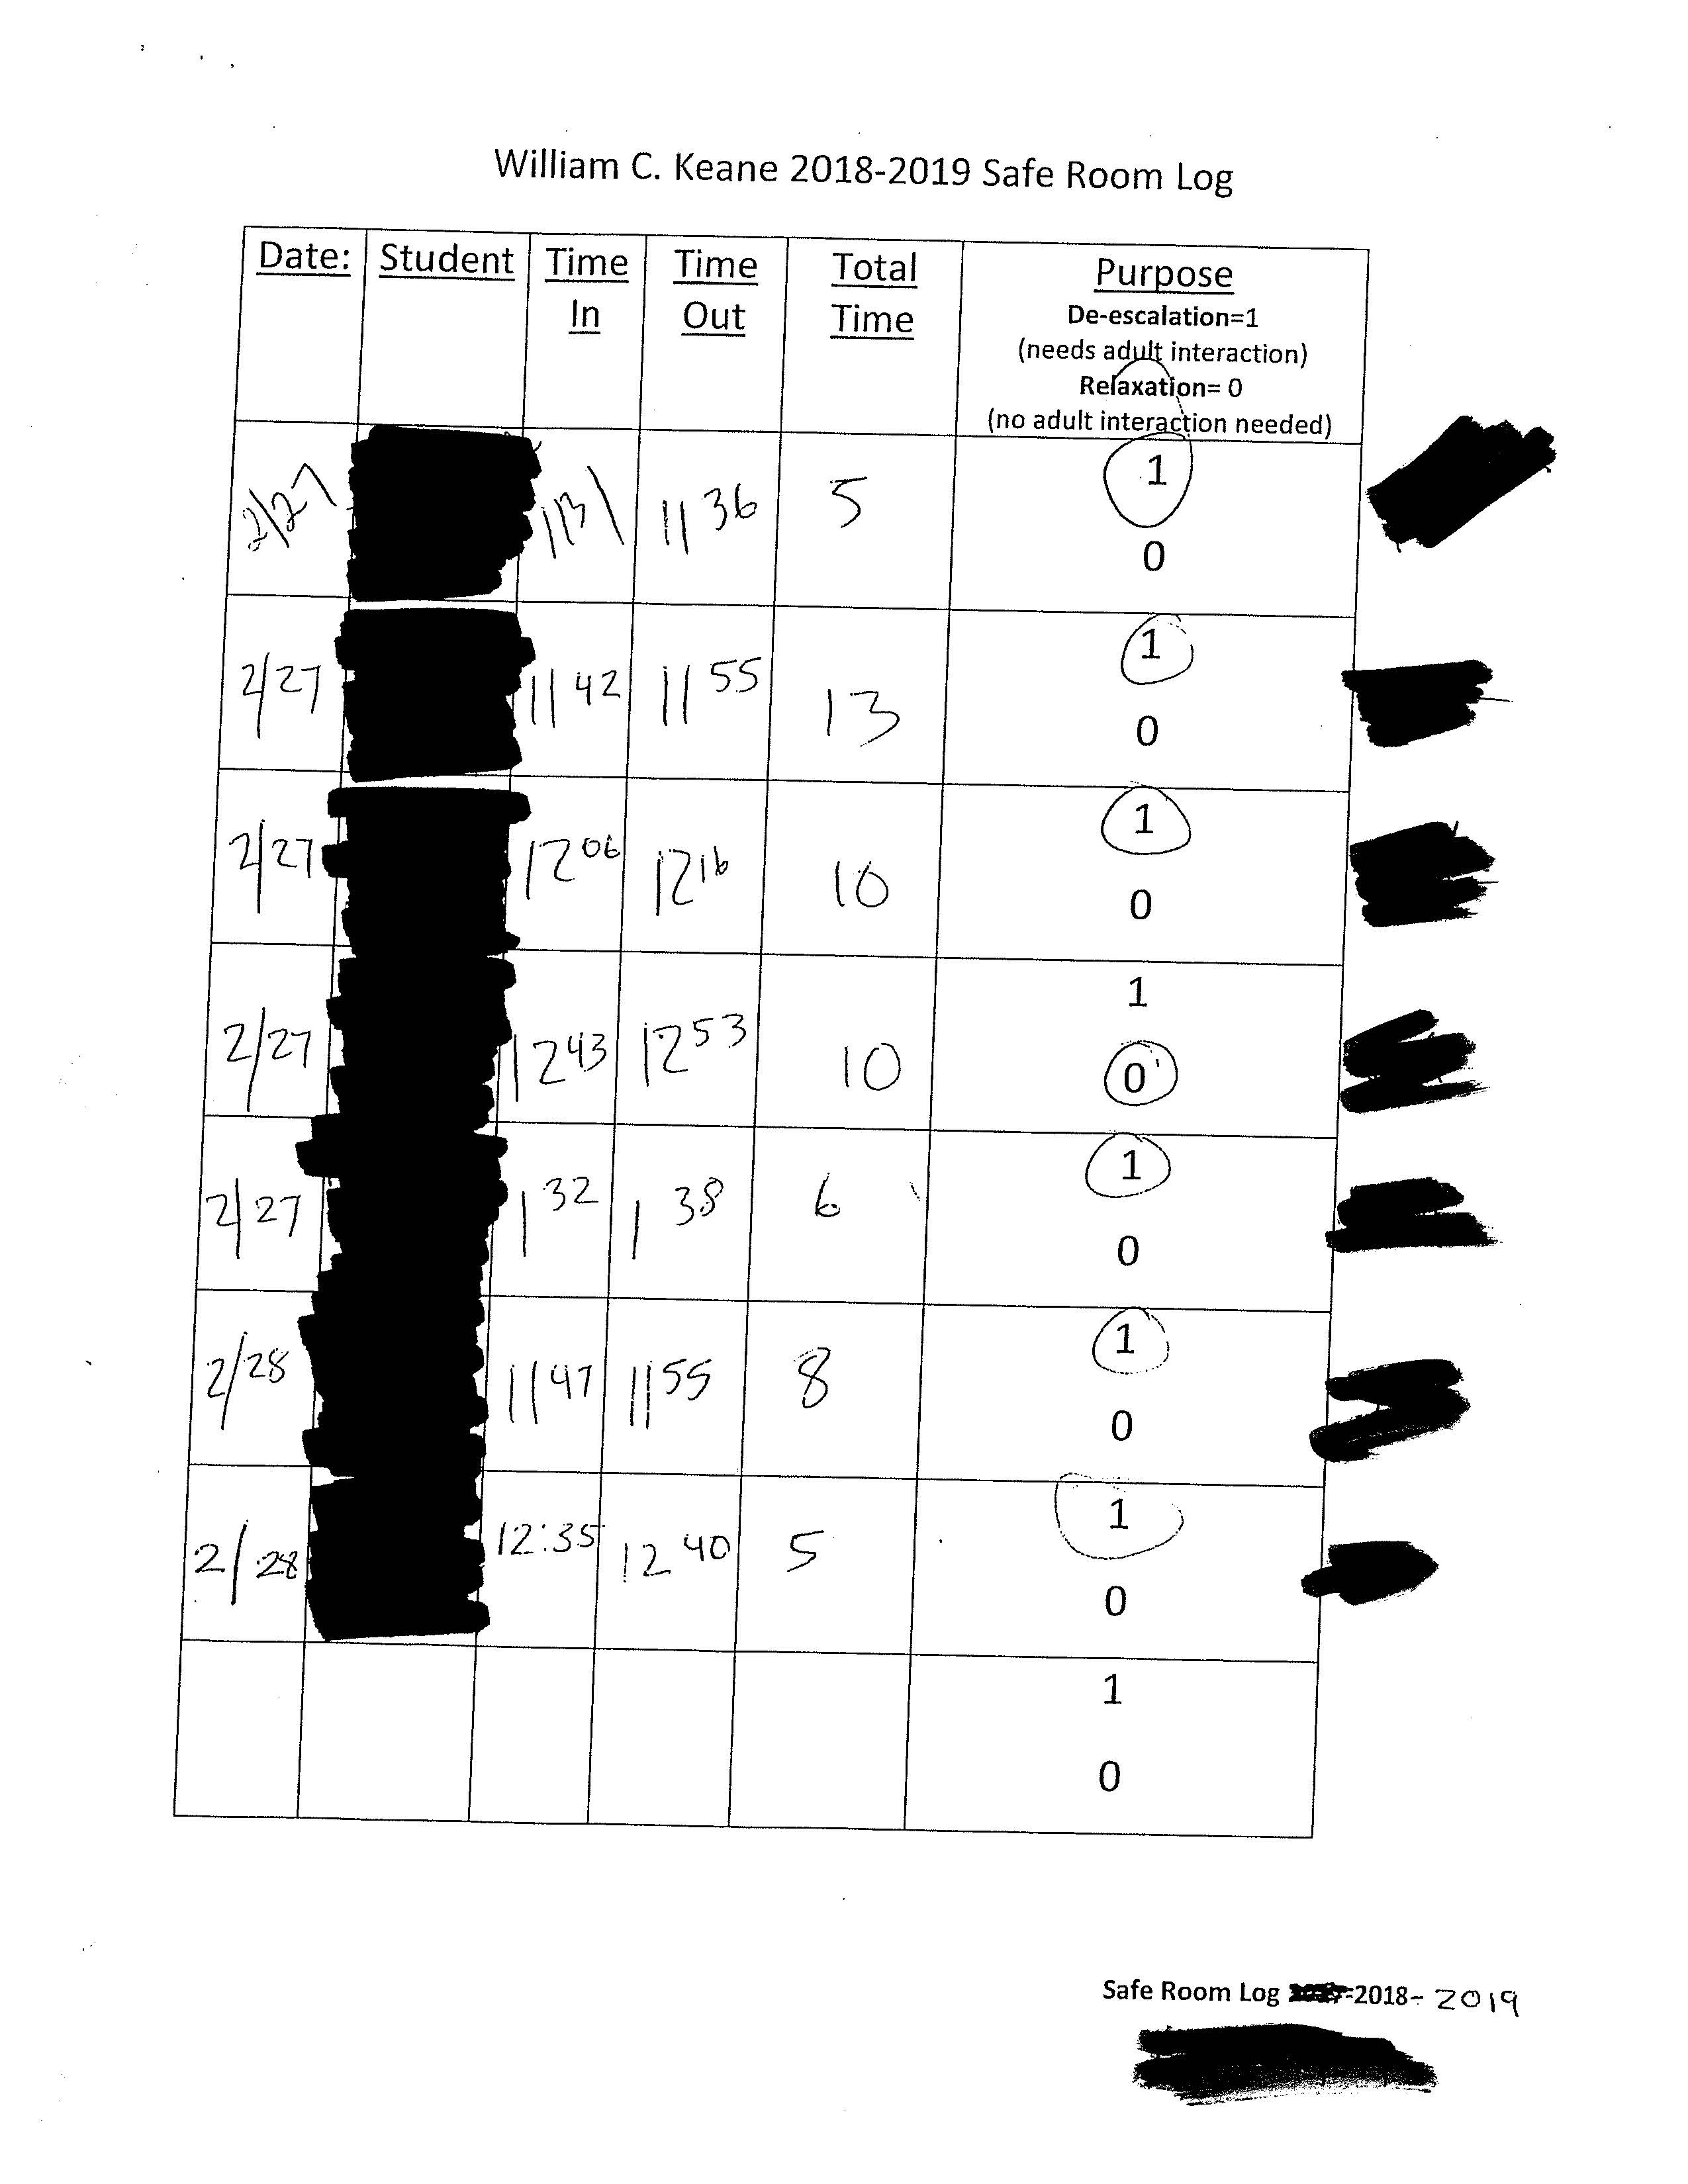 William C. Keane 2018-2019 Safe Room Log
Date: Student Time In Time Out Total Time Purpose
De-escalation=1
(needs adult interaction)
Relaxation= 0
(no adult interaction needed)
2/27 1131 1136 5 1
0
2/27 1142 1155 13 1
0
2/27 1206 1216 10 1
0
2/27 1243 1253 10 1
0
2/27 132 138 6 1
0
2/28 1147 1155 8 1
0
2/28 12:35 1240 5 1
0
1
0
Safe Room Log 2018-2019